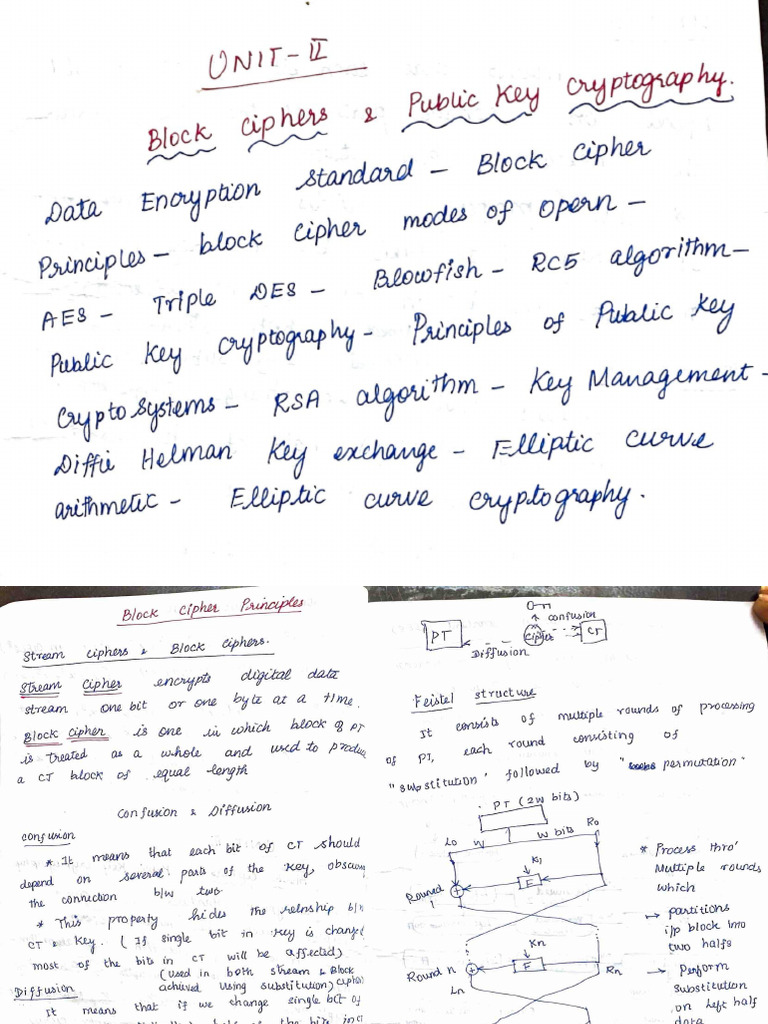 UNIT-II
Block Ciphers & Public Key Cryptography.
Data Encryption Standard - Block Cipher
Principles - block cipher modes of opern -
AES - Triple DES - Blowfish - RC5 algorithm -
Public Key cryptography - Principles of Public Key
Crypto Systems - RSA algorithm - Key Management -
Diffie Helman Key exchange - Elliptic curve
arithmetic - Elliptic curve cryptography.
Block Cipher Principles
Stream ciphers & Block ciphers.
Stream Cipher encrypts digital data
stream one bit or one byte at a time.
Block cipher is one in which block of PT
is treated as a whole and used to produce
a CT block of equal length
Confusion & Diffusion
confusion
* It means that each bit of CT should
depend on several parts of the key, obscuring
the connection b/w two
* This property hides the relnship b/n
CT & Key. (If single bit in key is changed
most of the bits in CT will be affected)
(used in both stream & Block
achieved using substitution)
Diffusion
It means that if we change single bit of
half of the bits in
PT
cipher
confusion
CT
Diffusion
Feistel structure
It consists of multiple rounds of processing
of PT, each round consisting of
"substitution" followed by "permutation"
PT (2w bits)
L0 w
w bits R0
K1
F
Round
1
Kn
F
Round n
Ln
Rn
* Process thro'
Multiple rounds
which
→ partitions
i/p block into
two halfs
→ Perform
substitution
on left half
data